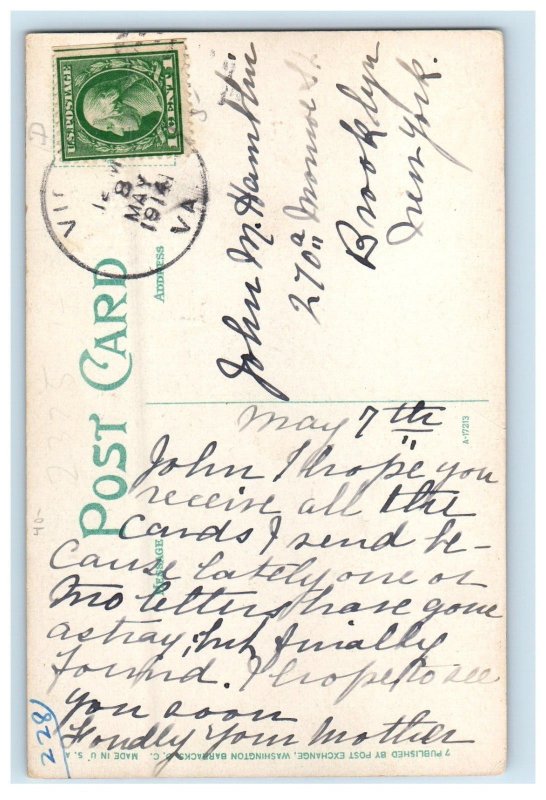 POST CARD
ADDRESS
MESSAGE
U.S. POSTAGE
1 CENT 1
8
MAY
1914
VA
John M. Hamblin
270a Monroe St
Brooklyn
New York.
A-17213
May 7th
John, I hope you
receive all the
cards I send be-
cause lately one or
two letters have gone
astray, but finally
found. I hope to see
you soon
Fondly Your Mother
7 PUBLISHED BY POST EXCHANGE, WASHINGTON BARRACKS, D. C. MADE IN U. S. A
228
40-